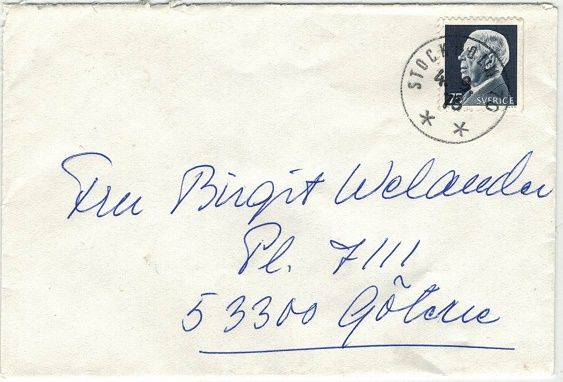 STOCKHOLM
75 SVERIGE
Fru Birgit Welander
Pl. 7111
53300 Götene